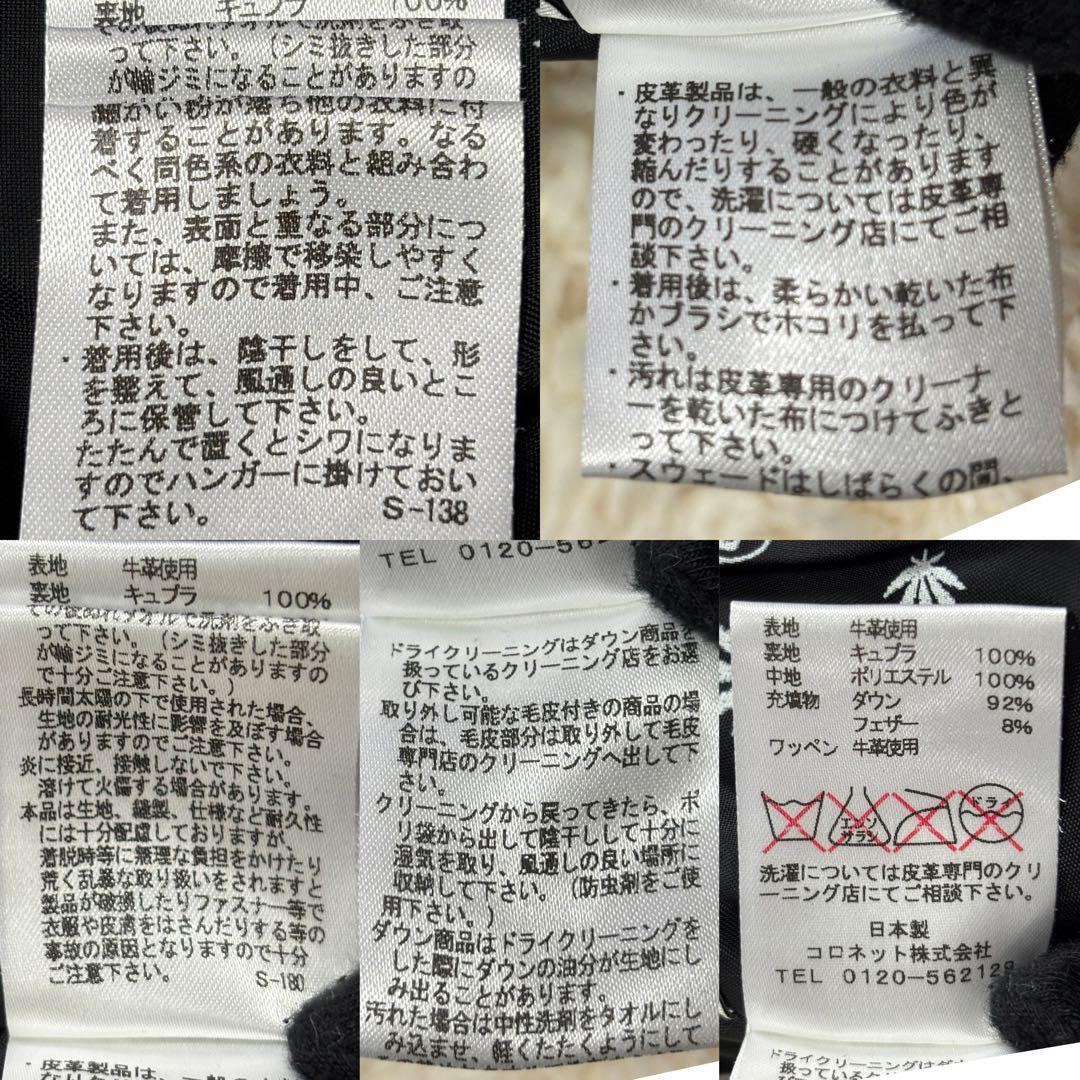 裏地 キュプラ 100%
って下さい。（シミ抜きした部分
が輪ジミになることがありますの
細かい粉が落ち他の衣料に付
着することがあります。なる
べく同色系の衣料と組み合わ
て着用しましょう。
また、表面と重なる部分につ
いては、摩擦で移染しやすく
なりますので着用中、ご注意
下さい。
・着用後は、陰干しをして、形
を整えて、風通しの良いとこ
ろに保管して下さい。
たたんで置くとシワになりま
すのでハンガーに掛けておい
て下さい。 S-138
・皮革製品は、一般の衣料と異
なりクリーニングにより色が
変わったり、硬くなったり、
縮んだりすることがあります
ので、洗濯については皮革専
門のクリーニング店にてご相
談下さい。
・着用後は、柔らかい乾いた布
かブラシでホコリを払って下
さい。
・汚れは皮革専用のクリーナ
ーを乾いた布につけてふきと
って下さい。
・スウェードはしばらくの間、
表地 牛革使用
裏地 キュプラ 100%
って下さい。（シミ抜きした部分
が輪ジミになることがありますの
で十分ご注意下さい。）
長時間太陽の下で使用された場合、
生地の耐光性に影響を及ぼす場合
がありますのでご注意下さい。
炎に接近、接触しないで下さい。
溶けて火傷する場合があります。
本品は生地、縫製、仕様など耐久性
には十分配慮しておりますが、
着脱時等に無理な負担をかけたり
荒く乱暴な取り扱いをされますと
製品が破損したりファスナー等で
衣服や皮膚をはさんだりする等の
事故の原因となりますので十分
ご注意下さい。 S-180
・皮革製品は、一般の衣料と異
TEL 0120-562129
ドライクリーニングはダウン商品を
扱っているクリーニング店をお選
び下さい。
取り外し可能な毛皮付きの商品の場
合は、毛皮部分は取り外して毛皮
専門店のクリーニングへ出して下
さい。
クリーニングから戻ってきたら、ポ
リ袋から出して陰干しして十分に
湿気を取り、風通しの良い場所に
収納して下さい。（防虫剤をご使
用下さい。）
ダウン商品はドライクリーニングを
した際にダウンの油分が生地にし
み出ることがあります。
汚れた場合は中性洗剤をタオルにし
み込ませ、軽くたたくようにして
表地 牛革使用
裏地 キュプラ 100%
中地 ポリエステル 100%
充填物 ダウン 92%
フェザー 8%
ワッペン 牛革使用
エンソ サラシ ドライ
洗濯については皮革専門のクリ
ーニング店にてご相談下さい。
日本製
コロネット株式会社
TEL 0120-562129
ドライクリーニングはダ
扱っているクリーニング